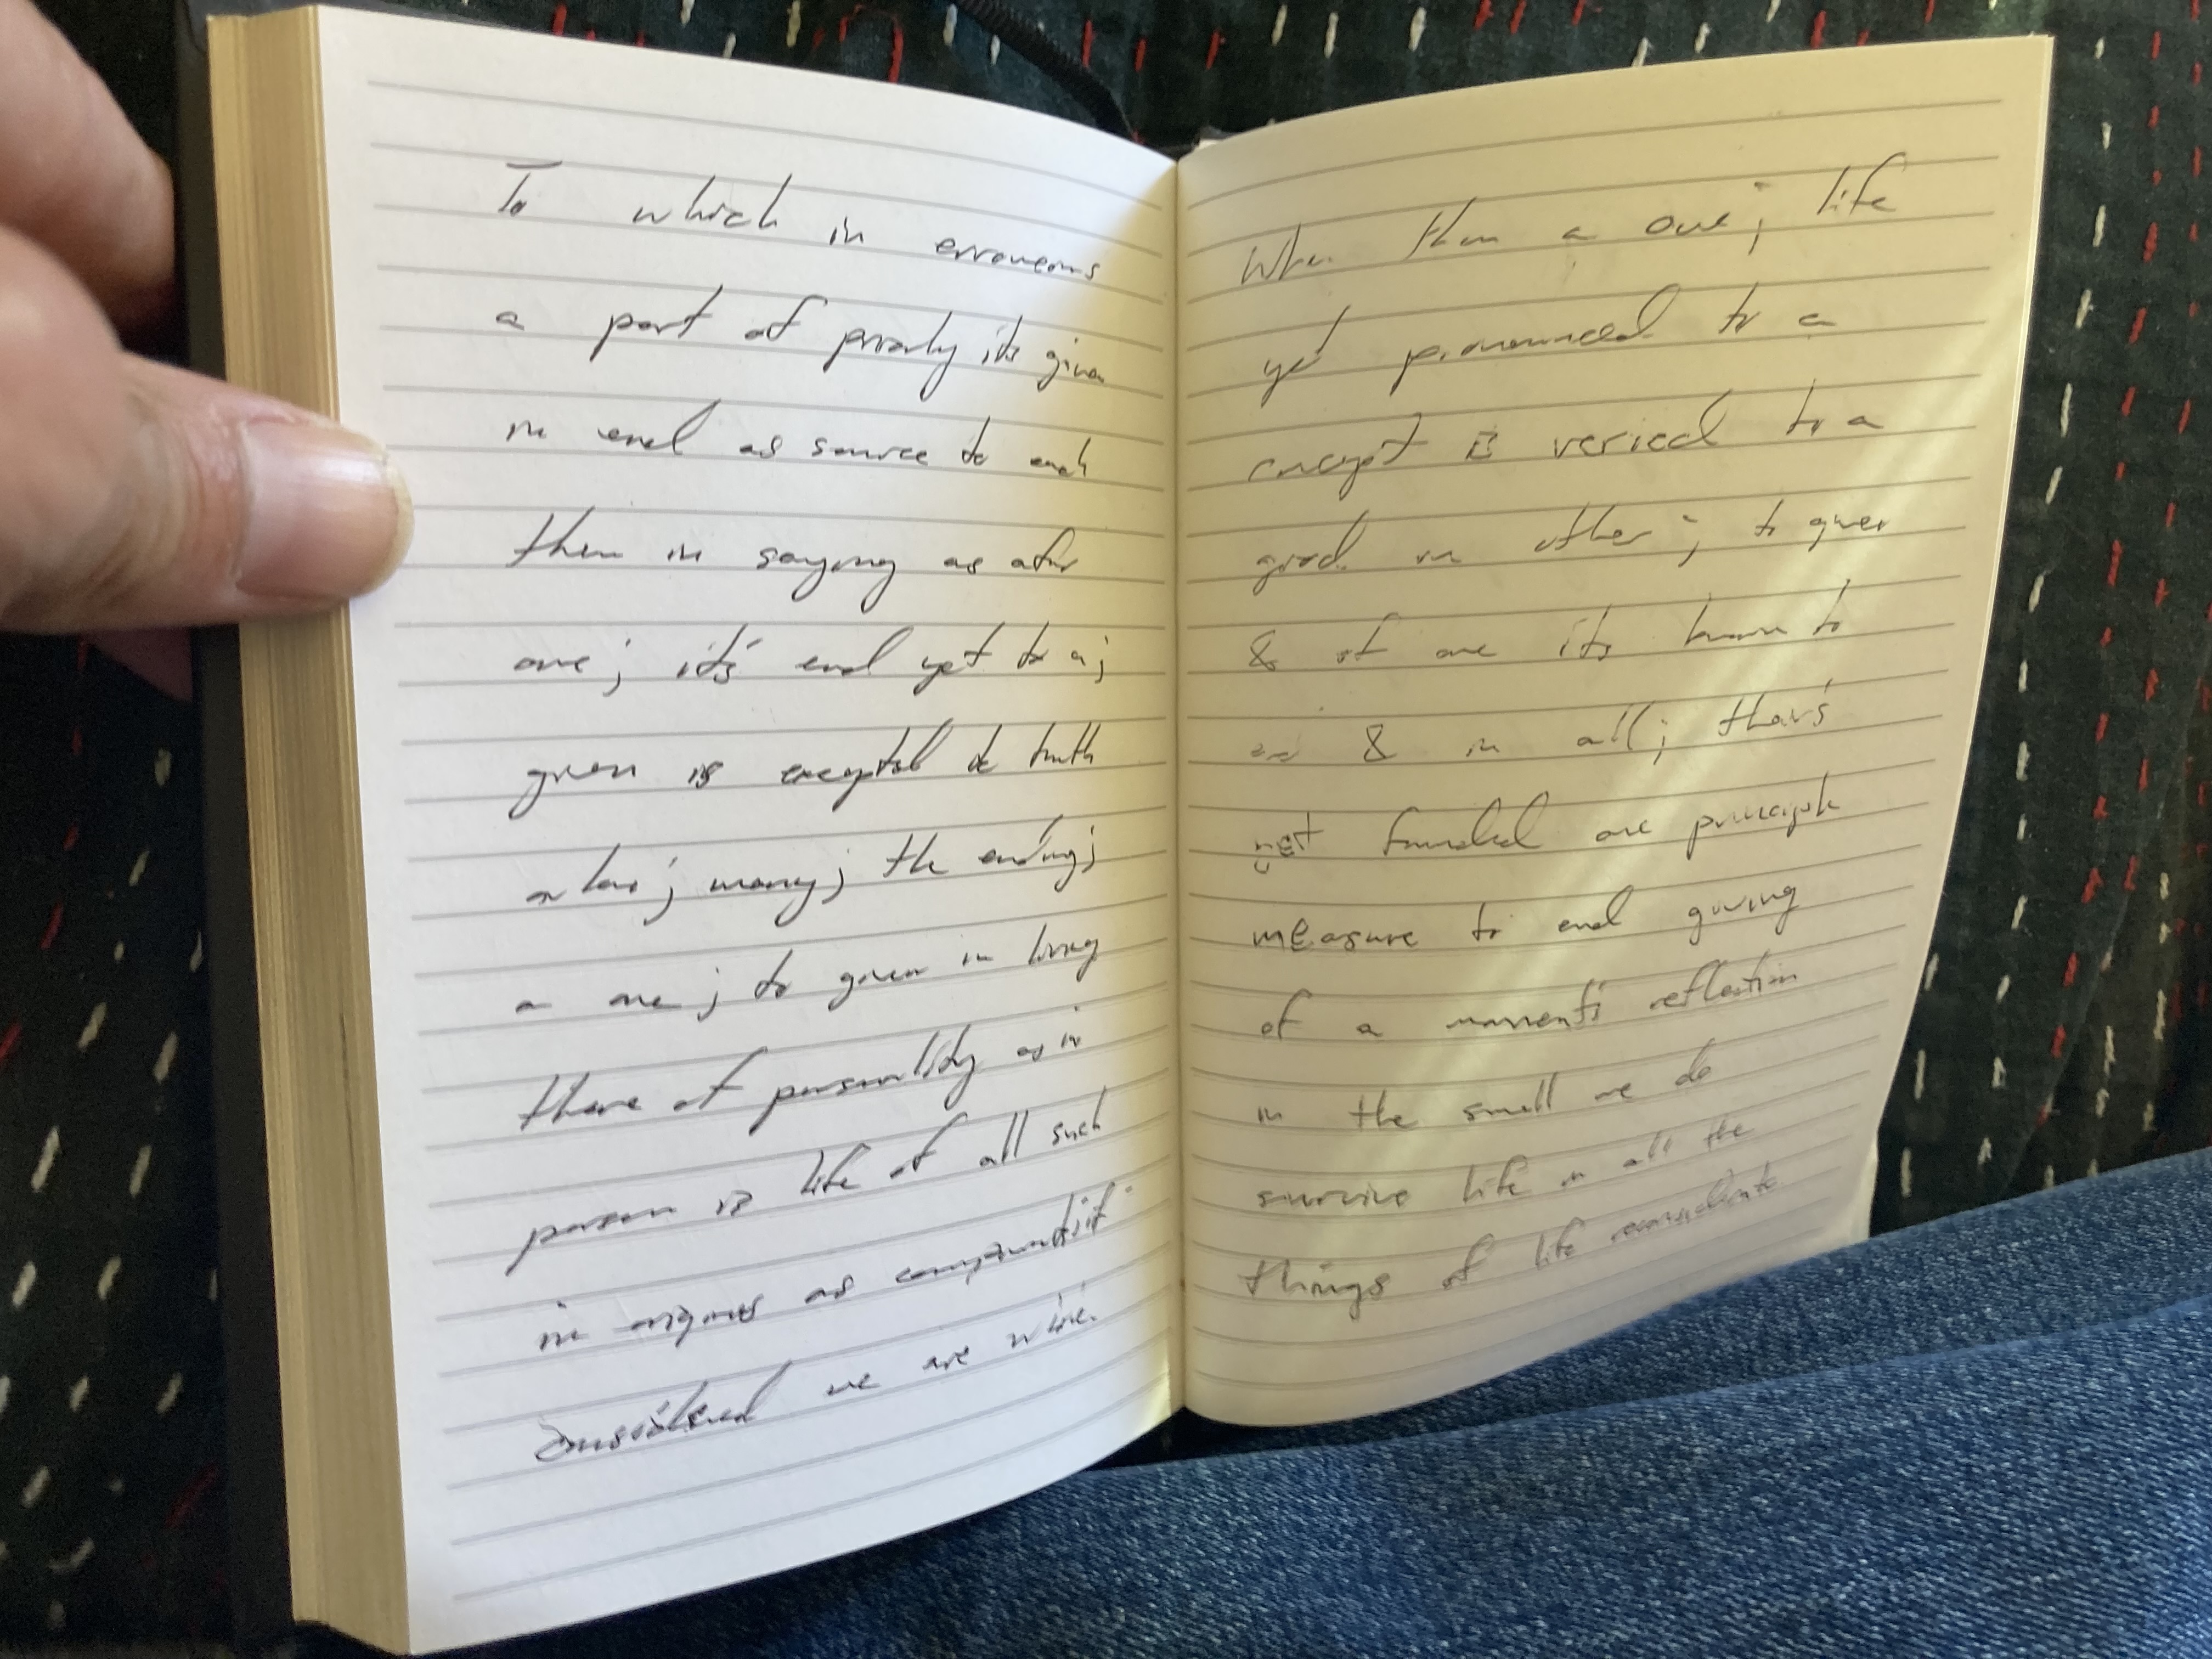 To which in erroneous
a part of its given
in end as source to each
then in saying as after
one; it's end yet to a;
given is to truth
a law; many; the ending;
a one; to given in living
there of personality as in
person is life of all such
in as
considered we are
When then a one; life
yet pronounced to a
is to a
good in other; to given
& of one its known to
& in all; theirs
not founded are principle
measure to end giving
of a moment's reflection
in the small we do
survive life in all the
things of life